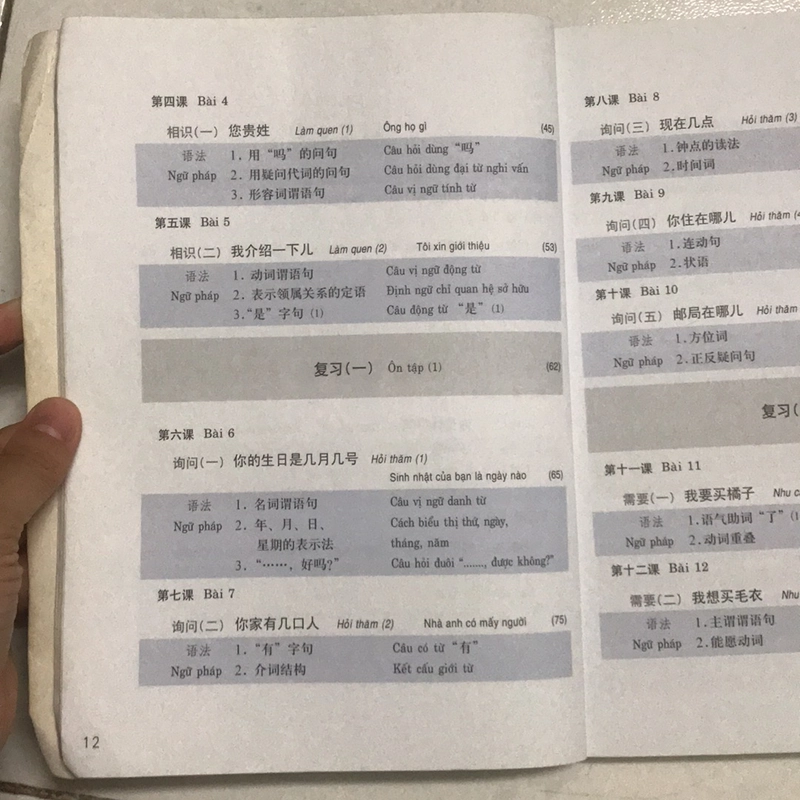 第四课 Bài 4
相识(一) 您贵姓 Làm quen (1) Ông họ gì (45)
语法 1. 用“吗”的问句 Câu hỏi dùng “吗”
Ngữ pháp 2. 用疑问代词的问句 Câu hỏi dùng đại từ nghi vấn
3. 形容词谓语句 Câu vị ngữ tính từ
第五课 Bài 5
相识(二) 我介绍一下儿 Làm quen (2) Tôi xin giới thiệu (53)
语法 1. 动词谓语句 Câu vị ngữ động từ
Ngữ pháp 2. 表示领属关系的定语 Định ngữ chỉ quan hệ sở hữu
3.“是”字句 (1) Câu động từ “是” (1)
复习(一) Ôn tập (1) (62)
第六课 Bài 6
询问(一) 你的生日是几月几号 Hỏi thăm (1)
Sinh nhật của bạn là ngày nào (65)
语法 1. 名词谓语句 Câu vị ngữ danh từ
Ngữ pháp 2. 年、月、日、 Cách biểu thị thứ, ngày,
星期的表示法 tháng, năm
3. “……, 好吗?” Câu hỏi đuôi “......., được không?”
第七课 Bài 7
询问(二) 你家有几口人 Hỏi thăm (2) Nhà anh có mấy người (75)
语法 1. “有”字句 Câu có từ “有”
Ngữ pháp 2. 介词结构 Kết cấu giới từ
12
第八课 Bài 8
询问(三) 现在几点 Hỏi thăm (3)
语法 1.钟点的读法
Ngữ pháp 2.时间词
第九课 Bài 9
询问(四) 你住在哪儿 Hỏi thăm (4
语法 1.连动句
Ngữ pháp 2.状语
第十课 Bài 10
询问(五) 邮局在哪儿 Hỏi thăm
语法 1.方位词
Ngữ pháp 2.正反疑问句
复习(
第十一课 Bài 11
需要(一) 我要买橘子 Nhu c
语法 1.语气助词“了”(1
Ngữ pháp 2.动词重叠
第十二课 Bài 12
需要(二) 我想买毛衣 Nhu
语法 1.主谓谓语句
Ngữ pháp 2.能愿动词